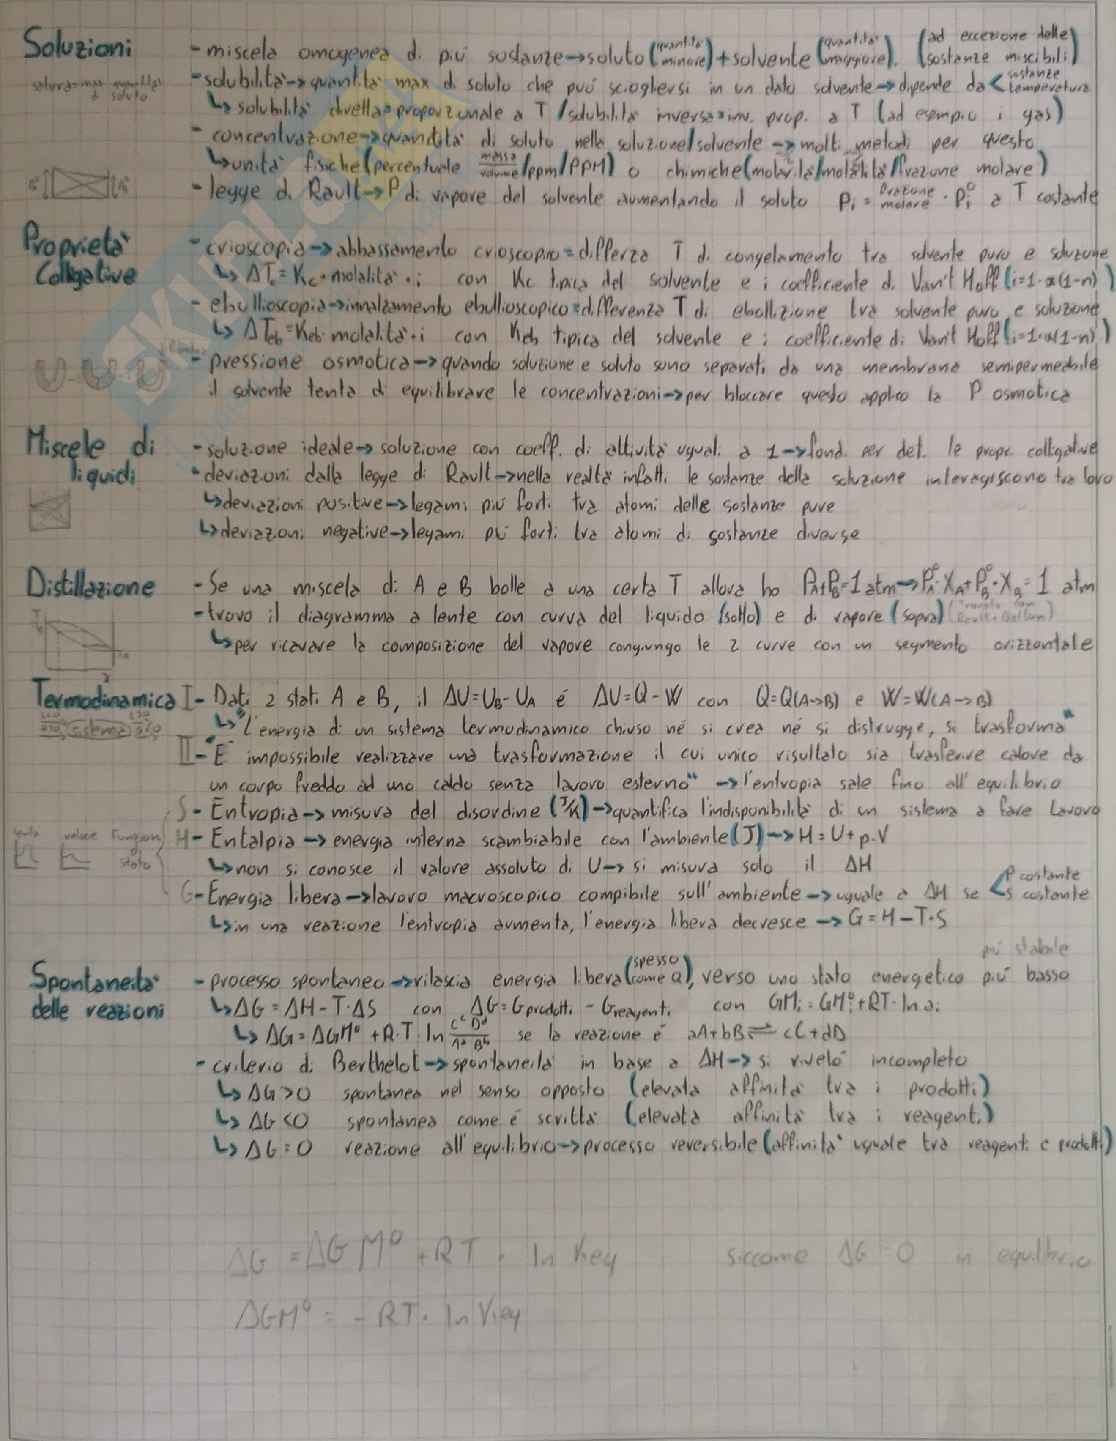 Soluzioni
- miscela omogenea di più sostanze → soluto (quantità minore) + solvente (quantità maggiore). (ad eccezione delle sostanze miscibili)
satura = max quantità di soluto
- solubilità → quantità max di soluto che può sciogliersi in un dato solvente → dipende da < sostanze temperatura
↳ solubilità diretta = proporzionale a T / solubilità inversa = inv. prop. a T (ad esempio i gas)
- concentrazione → quantità di soluto nella soluzione/solvente → molti metodi per questo
↳ unità fisiche (percentuale massa/volume /ppm/PPM) o chimiche (molarità/molalità/frazione molare)
- legge di Rault → P di vapore del solvente aumentando il soluto Pi = frazione molare · Pi° a T costante
Proprietà Colligative
- crioscopia → abbassamento crioscopio = differza T di congelamento tra solvente puro e soluzione
↳ ΔTc = Kc · molalità · i con Kc tipica del solvente e i coefficiente di Van't Hoff (i=1-α(1-n))
- ebullioscopia → innalzamento ebullioscopico = differenza T di ebollizione tra solvente puro e soluzione
↳ ΔTeb = Keb · molalità · i con Keb tipica del solvente e i coefficiente di Van't Hoff (i=1-α(1-n))
- pressione osmotica → quando soluzione e soluto sono separati da una membrana semipermeabile
il solvente tenta di equilibrare le concentrazioni → per bloccare questo applico la P osmotica
Miscele di liquidi
- soluzione ideale → soluzione con coeff. di attività uguali a 1 → fond. per det. le propr. colligative
- deviazioni dalla legge di Rault → nella realtà infatti le sostanze della soluzione interagiscono tra loro
↳ deviazioni positive → legami più forti tra atomi delle sostanze pure
↳ deviazioni negative → legami più forti tra atomi di sostanze diverse
Distillazione
- Se una miscela di A e B bolle a una certa T allora ho PA+PB=1 atm → P°A·XA+P°B·XB=1 atm
- trovo il diagramma a lente con curva del liquido (sotto) e di vapore (sopra)
↳ per ricavare la composizione del vapore congiungo le 2 curve con un segmento orizzontale
Termodinamica
I - Dati 2 stati A e B, il ΔU=UB-UA è ΔU=Q-W con Q=Q(A→B) e W=W(A→B)
↳ "L'energia di un sistema termodinamico chiuso né si crea né si distrugge, si trasforma"
II - "È impossibile realizzare una trasformazione il cui unico risultato sia trasferire calore da
un corpo freddo ad uno caldo senza lavoro esterno" → l'entropia sale fino all'equilibrio
S - Entropia → misura del disordine (J/K) → quantifica l'indisponibilità di un sistema a fare Lavoro
Funzioni di stato
H - Entalpia → energia interna scambiabile con l'ambiente (J) → H=U+p·V
↳ non si conosce il valore assoluto di U → si misura solo il ΔH
G - Energia libera → lavoro macroscopico compibile sull'ambiente → uguale a ΔH se < P costante s costante
↳ in una reazione l'entropia aumenta, l'energia libera decresce → G=H-T·S
più stabile
Spontaneità delle reazioni
- processo spontaneo → rilascia energia libera (spesso come Q), verso uno stato energetico più basso
↳ ΔG=ΔH-T·ΔS con ΔG=Gprodotti-Greagenti con GMi=GMi°+RT·ln ai
↳ ΔG=ΔGM°+R·T·ln C^c D^d / A^a B^b se la reazione è aA+bB ⇌ cC+dD
- criterio di Berthelot → spontaneità in base a ΔH → si rivelò incompleto
↳ ΔG>0 spontanea nel senso opposto (elevata affinità tra i prodotti)
↳ ΔG<0 spontanea come è scritta (elevata affinità tra i reagenti)
↳ ΔG=0 reazione all'equilibrio → processo reversibile (affinità uguale tra reagenti e prodotti)
ΔG = ΔGM° + RT · ln Keq siccome ΔG = 0 in equilibrio
ΔGM° = - RT · ln Keq